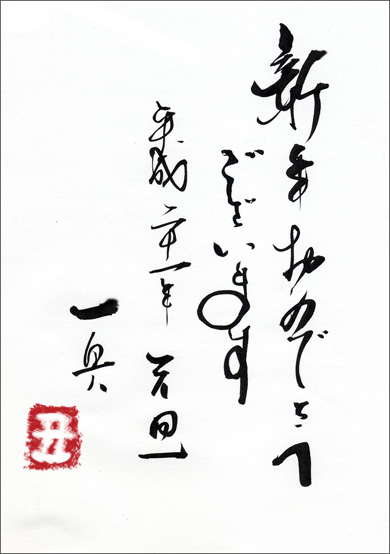 新年おめでとう
ございます
平成二十一年 元旦
一典
丑